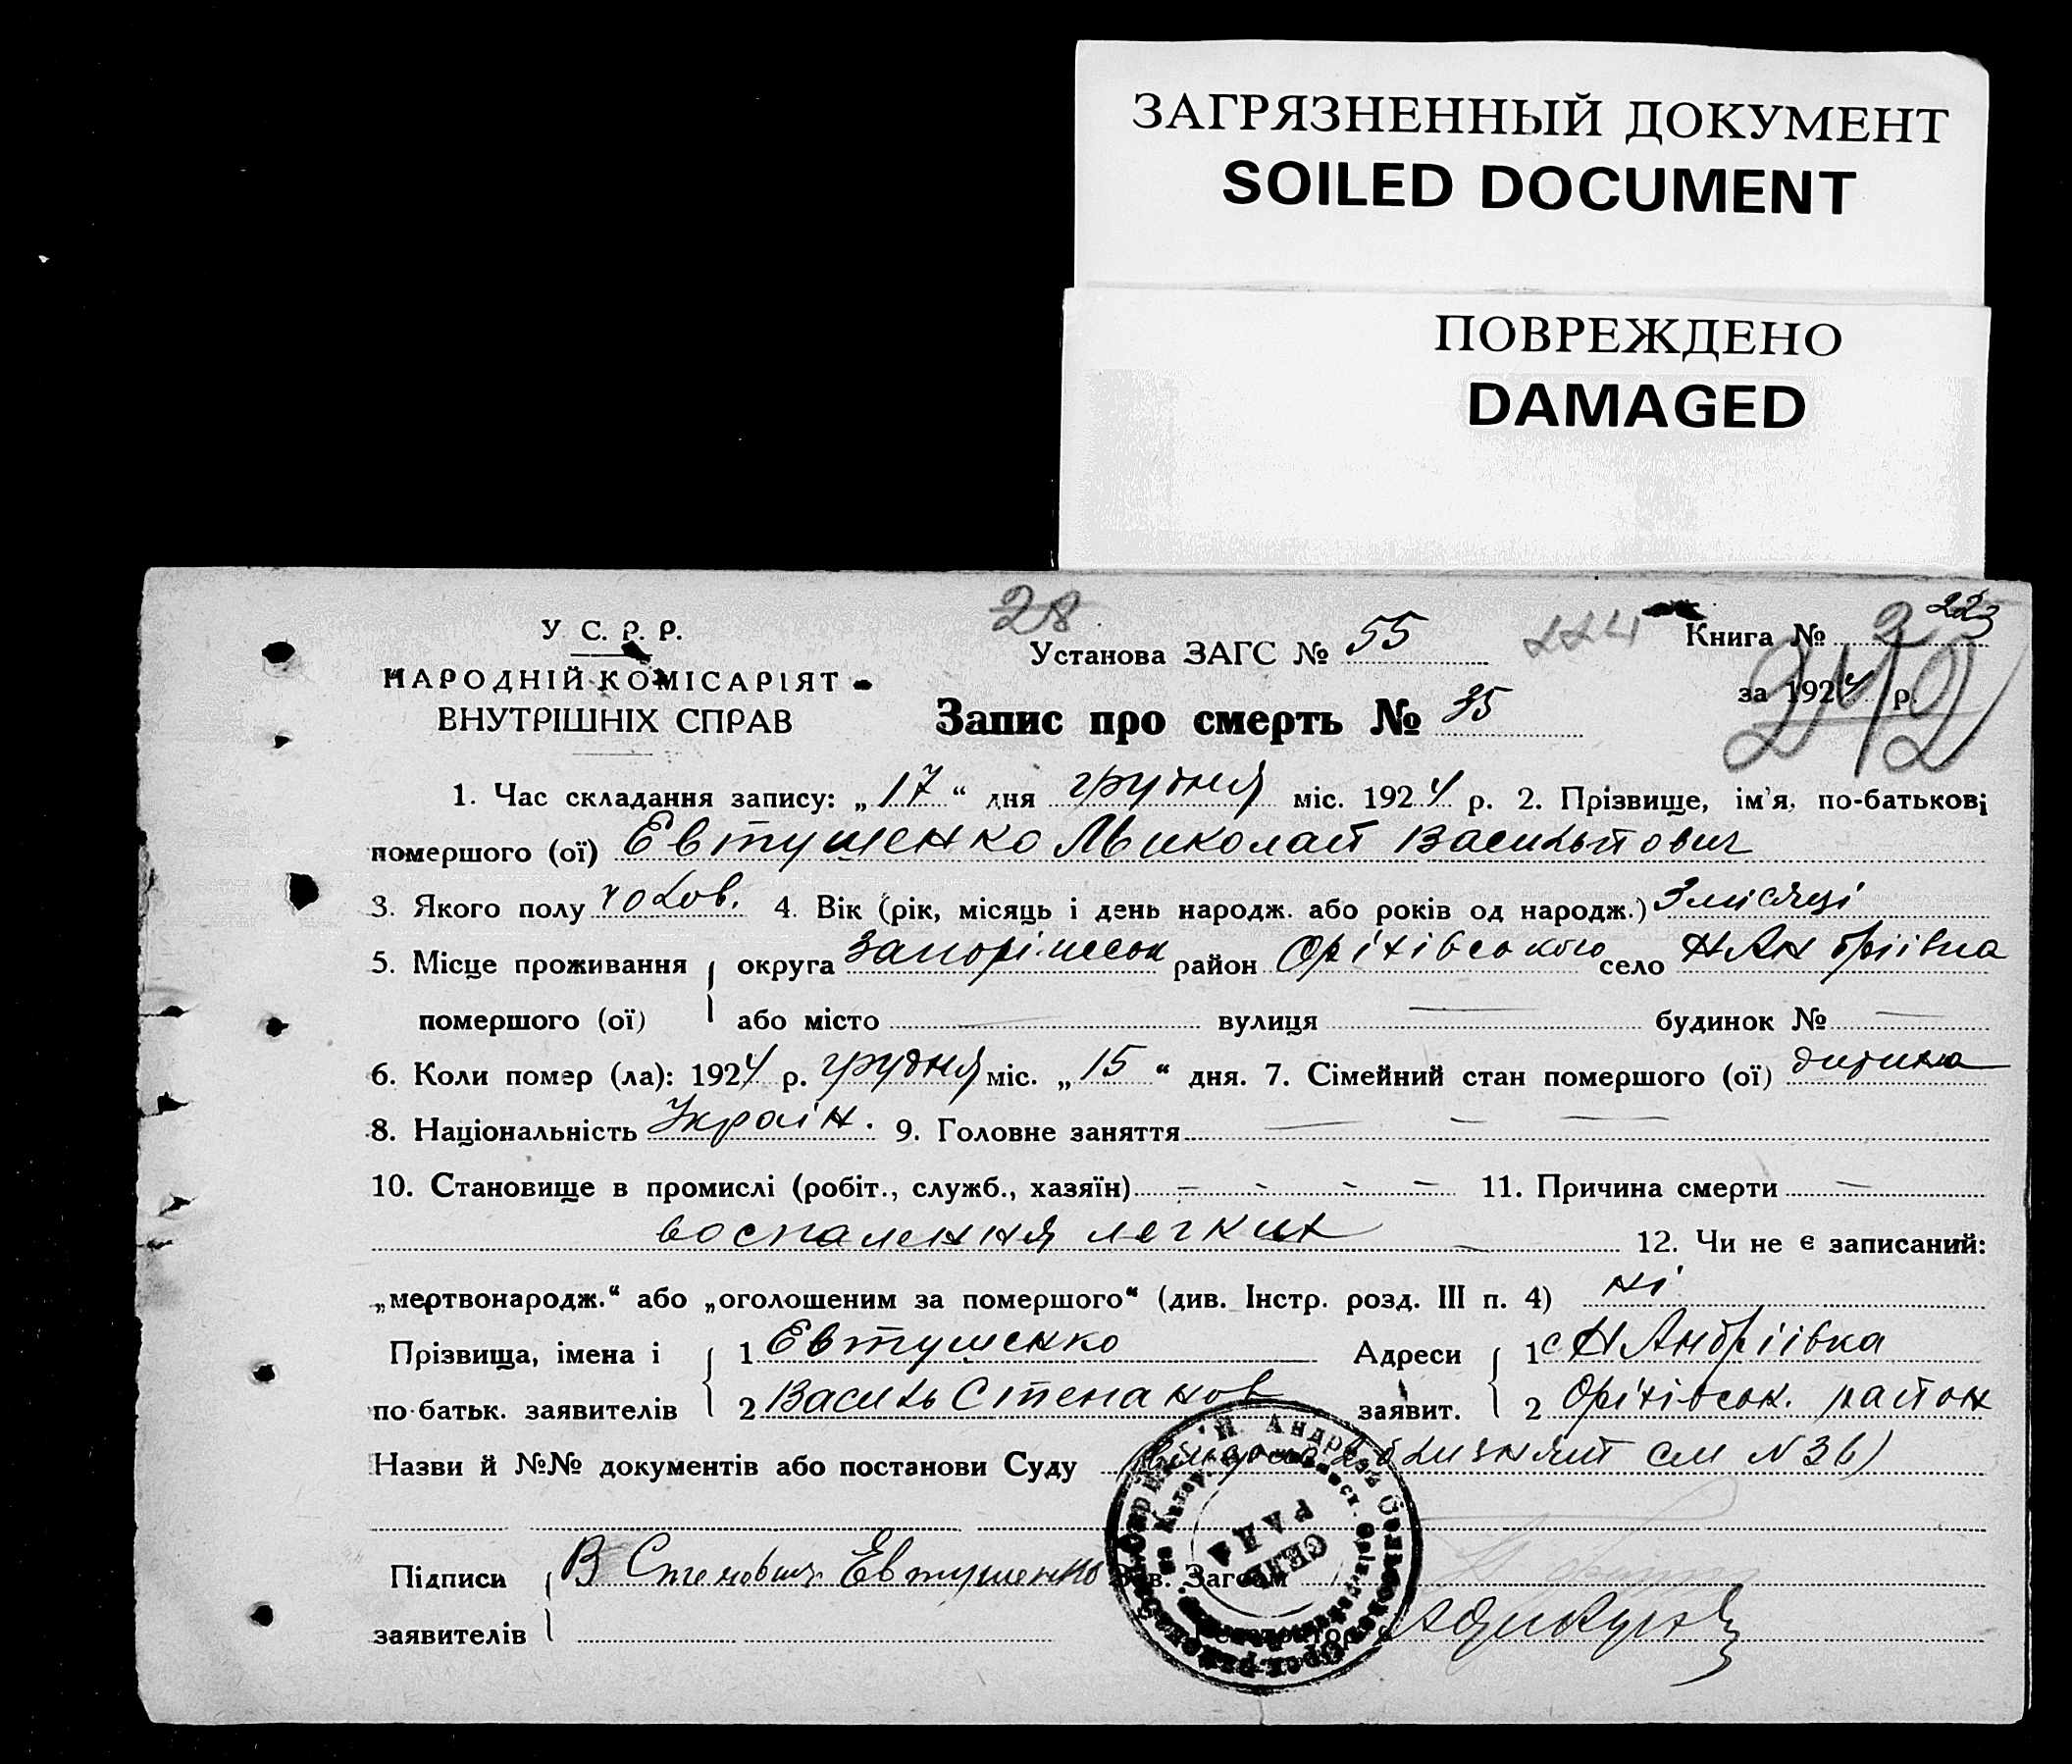 ЗАГРЯЗНЕННЫЙ ДОКУМЕНТ
SOILED DOCUMENT
ПОВРЕЖДЕНО
DAMAGED
28
У С. Р. Р.
Установа ЗАГС № 55 224 Книга № 2 223
НАРОДНІЙ КОМІСАРІЯТ
за 1924 р. 242
ВНУТРІШНІХ СПРАВ
Запис про смерть № 35
1. Час складання запису: „17“ дня грудня міс. 1924 р. 2. Прізвище, ім'я, по-батькові
помершого (ої) Евтушенко Миколай Васильйович
3. Якого полу чолов. 4. Вік (рік, місяць і день народж. або років од народж.) 3 місяці
5. Місце проживання округа район Оріхівського село Н Андріівка
помершого (ої) або місто — вулиця — будинок № —
6. Коли помер (ла): 1924 р. грудня міс. „15“ дня. 7. Сімейний стан помершого (ої) дитина
8. Національність Україн. 9. Головне заняття — — —
10. Становище в промислі (робіт., служб., хазяїн) — - - — 11. Причина смерти —
воспаления легких 12. Чи не є записаний:
„мертвонародж.“ або „оголошеним за помершого“ (див. Інстр. розд. III п. 4) ні
Прізвища, імена і 1 Евтушенко Адреси 1 с Н Андріівка
по-батьк. заявителів 2 Василь Степанов заявит. 2 Оріхівськ. район
Назви й №№ документів або постанови Суду близнят см N 36)
Підписи В Евтушенко Зав. Загсом
заявителів
СЕЛЬ
РАДА